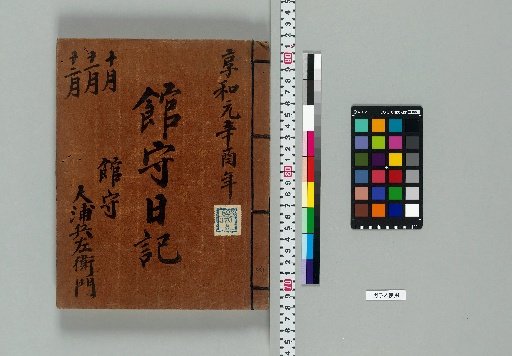 享和元辛酉年
館守日記
十月
十一月
十二月
館守
大浦兵左衛門